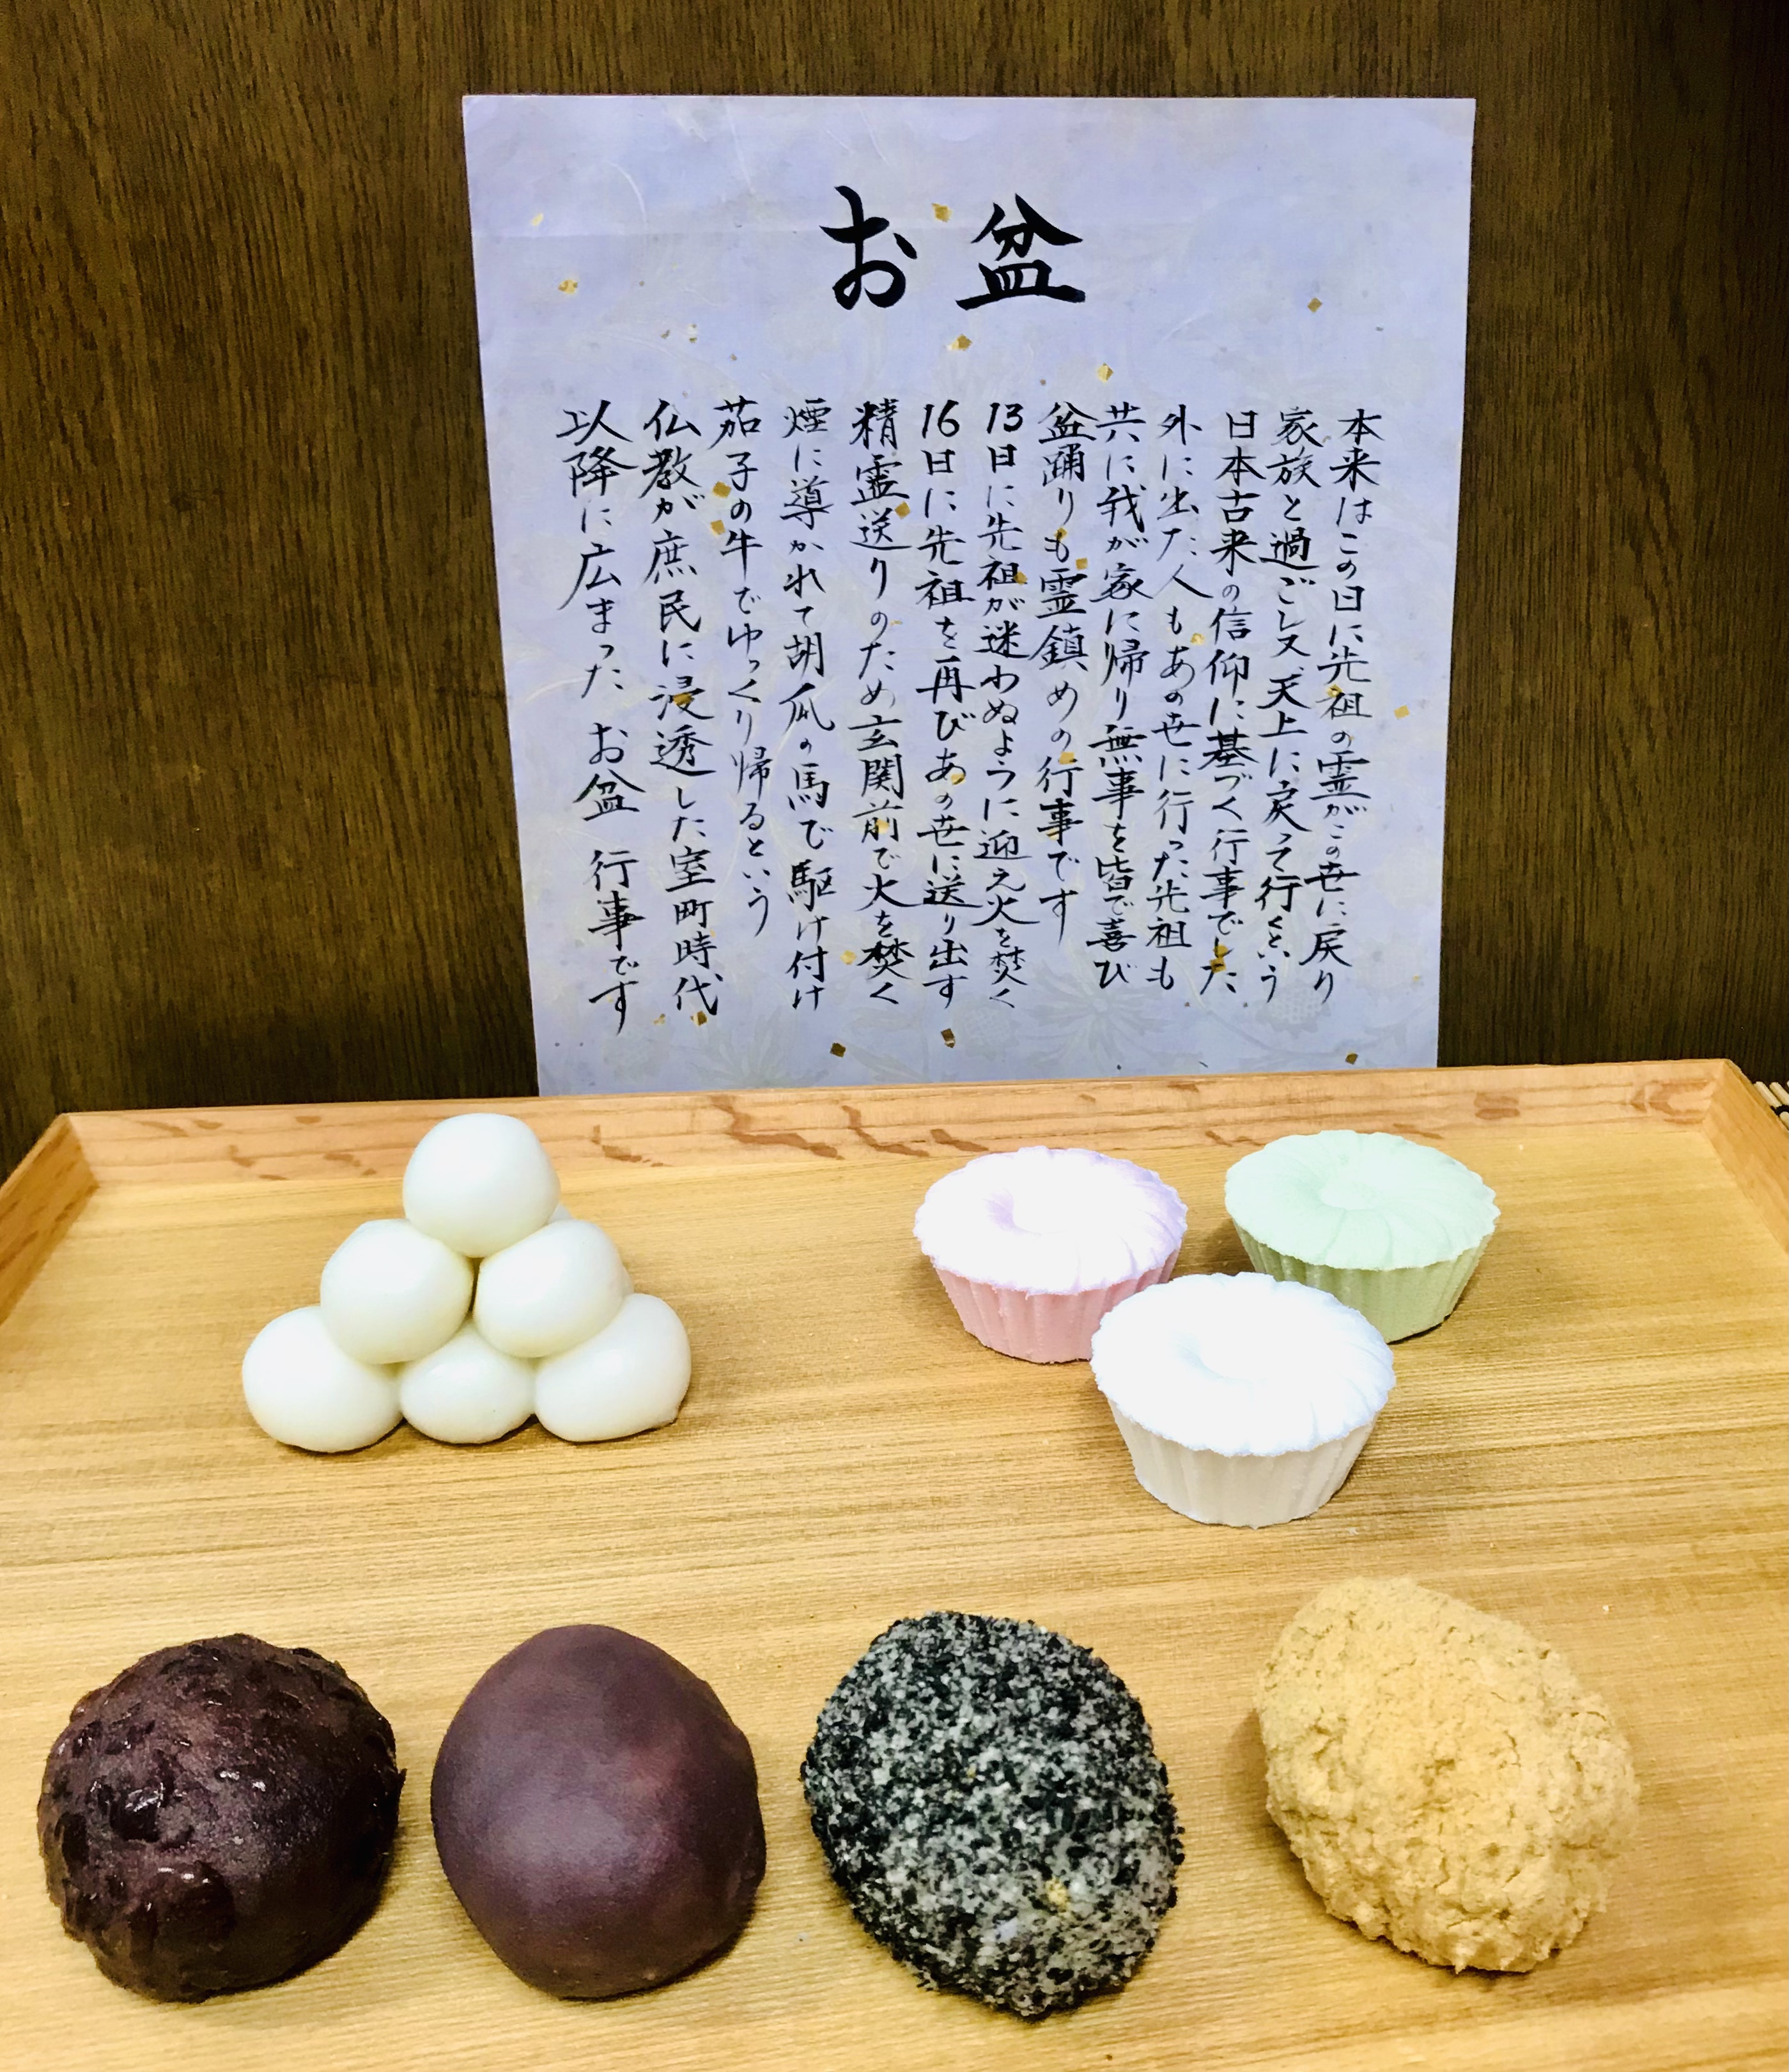 お盆
本来はこの日に先祖の霊がこの世に戻り
家族と過ごし又、天上に戻って行くという
日本古来の信仰に基づく行事でした
外に出た人もあの世に行った先祖も
共に我が家に帰り無事を皆で喜び
盆踊りも霊鎮めの行事です
13日に先祖が迷わぬように迎え火を焚く
16日に先祖を再びあの世に送り出す
精霊送りのため玄関前で火を焚く
煙に導かれて胡瓜の馬で駆け付け
茄子の牛でゆっくり帰るという
仏教が庶民に浸透した室町時代
以降に広まった お盆 行事です